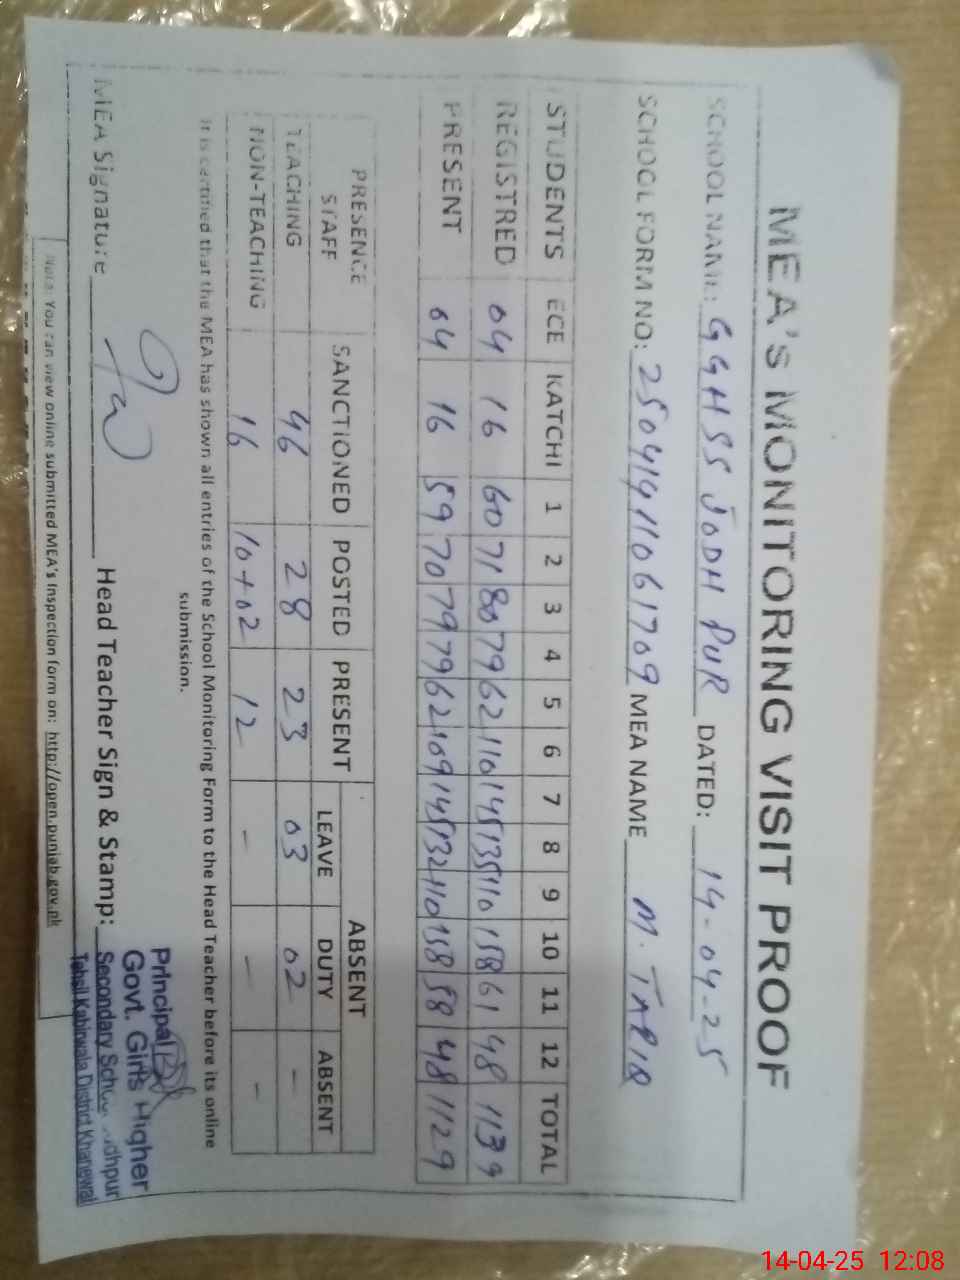 MEA's MONITORING VISIT PROOF
SCHOOL NAME: GGHSS JODH PUR DATED: 14-04-25
SCHOOL FORM NO: 25041411061709 MEA NAME M. TARIQ
STUDENTS ECE KATCHI 1 2 3 4 5 6 7 8 9 10 11 12 TOTAL
REGISTRED 04 16 60 71 80 79 62 110 145 135 110 158 61 48 1139
PRESENT 04 16 59 70 79 79 62 109 145 132 110 158 58 48 1129
PRESENCE STAFF SANCTIONED POSTED PRESENT ABSENT
LEAVE DUTY ABSENT
TEACHING 46 28 23 03 02 -
NON-TEACHING 16 10+02 12 - - -
It is certified that the MEA has shown all entries of the School Monitoring Form to the Head Teacher before its online
submission.
MEA Signature Head Teacher Sign & Stamp:
Principal
Govt. Girls Higher
Secondary
Tehsil Kabirwala District Khanewal
Note: You can view online submitted MEA's Inspection form on: http://open.punjab.gov.pk
14-04-25 12:08